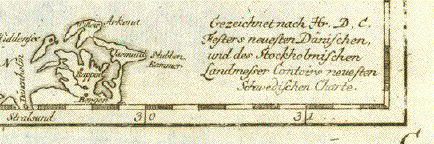 Arkona
Hiddensee
Jasmund
Stubben
Kammer
Bergen
Stralsund
30
31
Gezeichnet nach Hr. D. C.
Festers neuesten Dänischen,
und des Stockholmischen
Landmesser Contoirs neuesten
Schwedischen Charte.